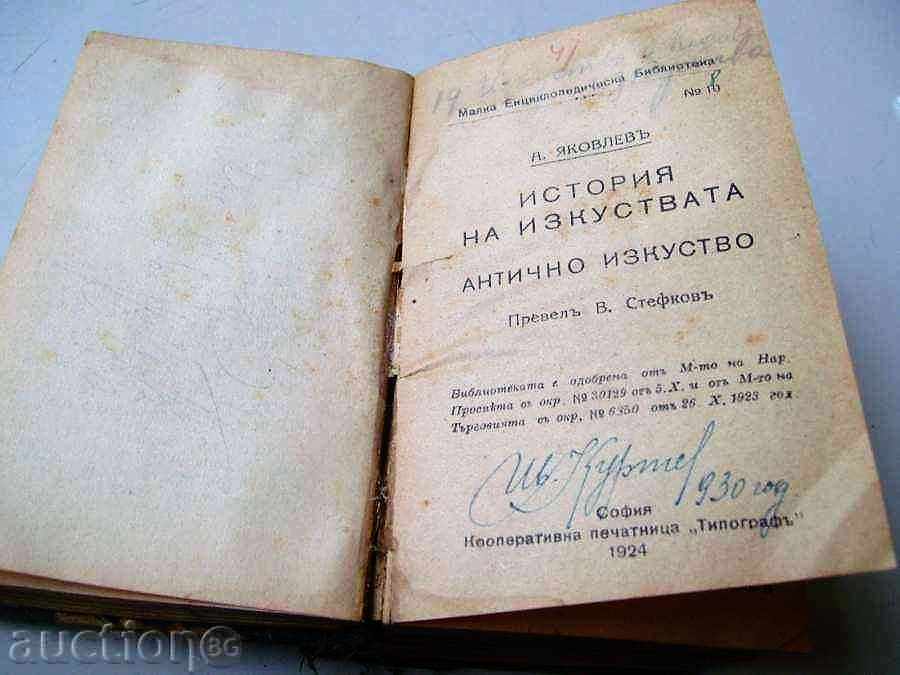 41
19
Малка Енциклопедическа Библиотека
№ 10
8
А. ЯКОВЛЕВЪ
ИСТОРИЯ
НА ИЗКУСТВАТА
АНТИЧНО ИЗКУСТВО
Превелъ В. Стефковъ
Библиотеката е одобрена отъ М-то на Нар.
Просвѣта съ окр. № 30129 отъ 5. X. и отъ М-то на
Търговията съ окр. № 6350 отъ 26 X. 1923 год.
Ив. Куртев
930 год.
София
Кооперативна печатница „Типографъ"
1924
auctionBG